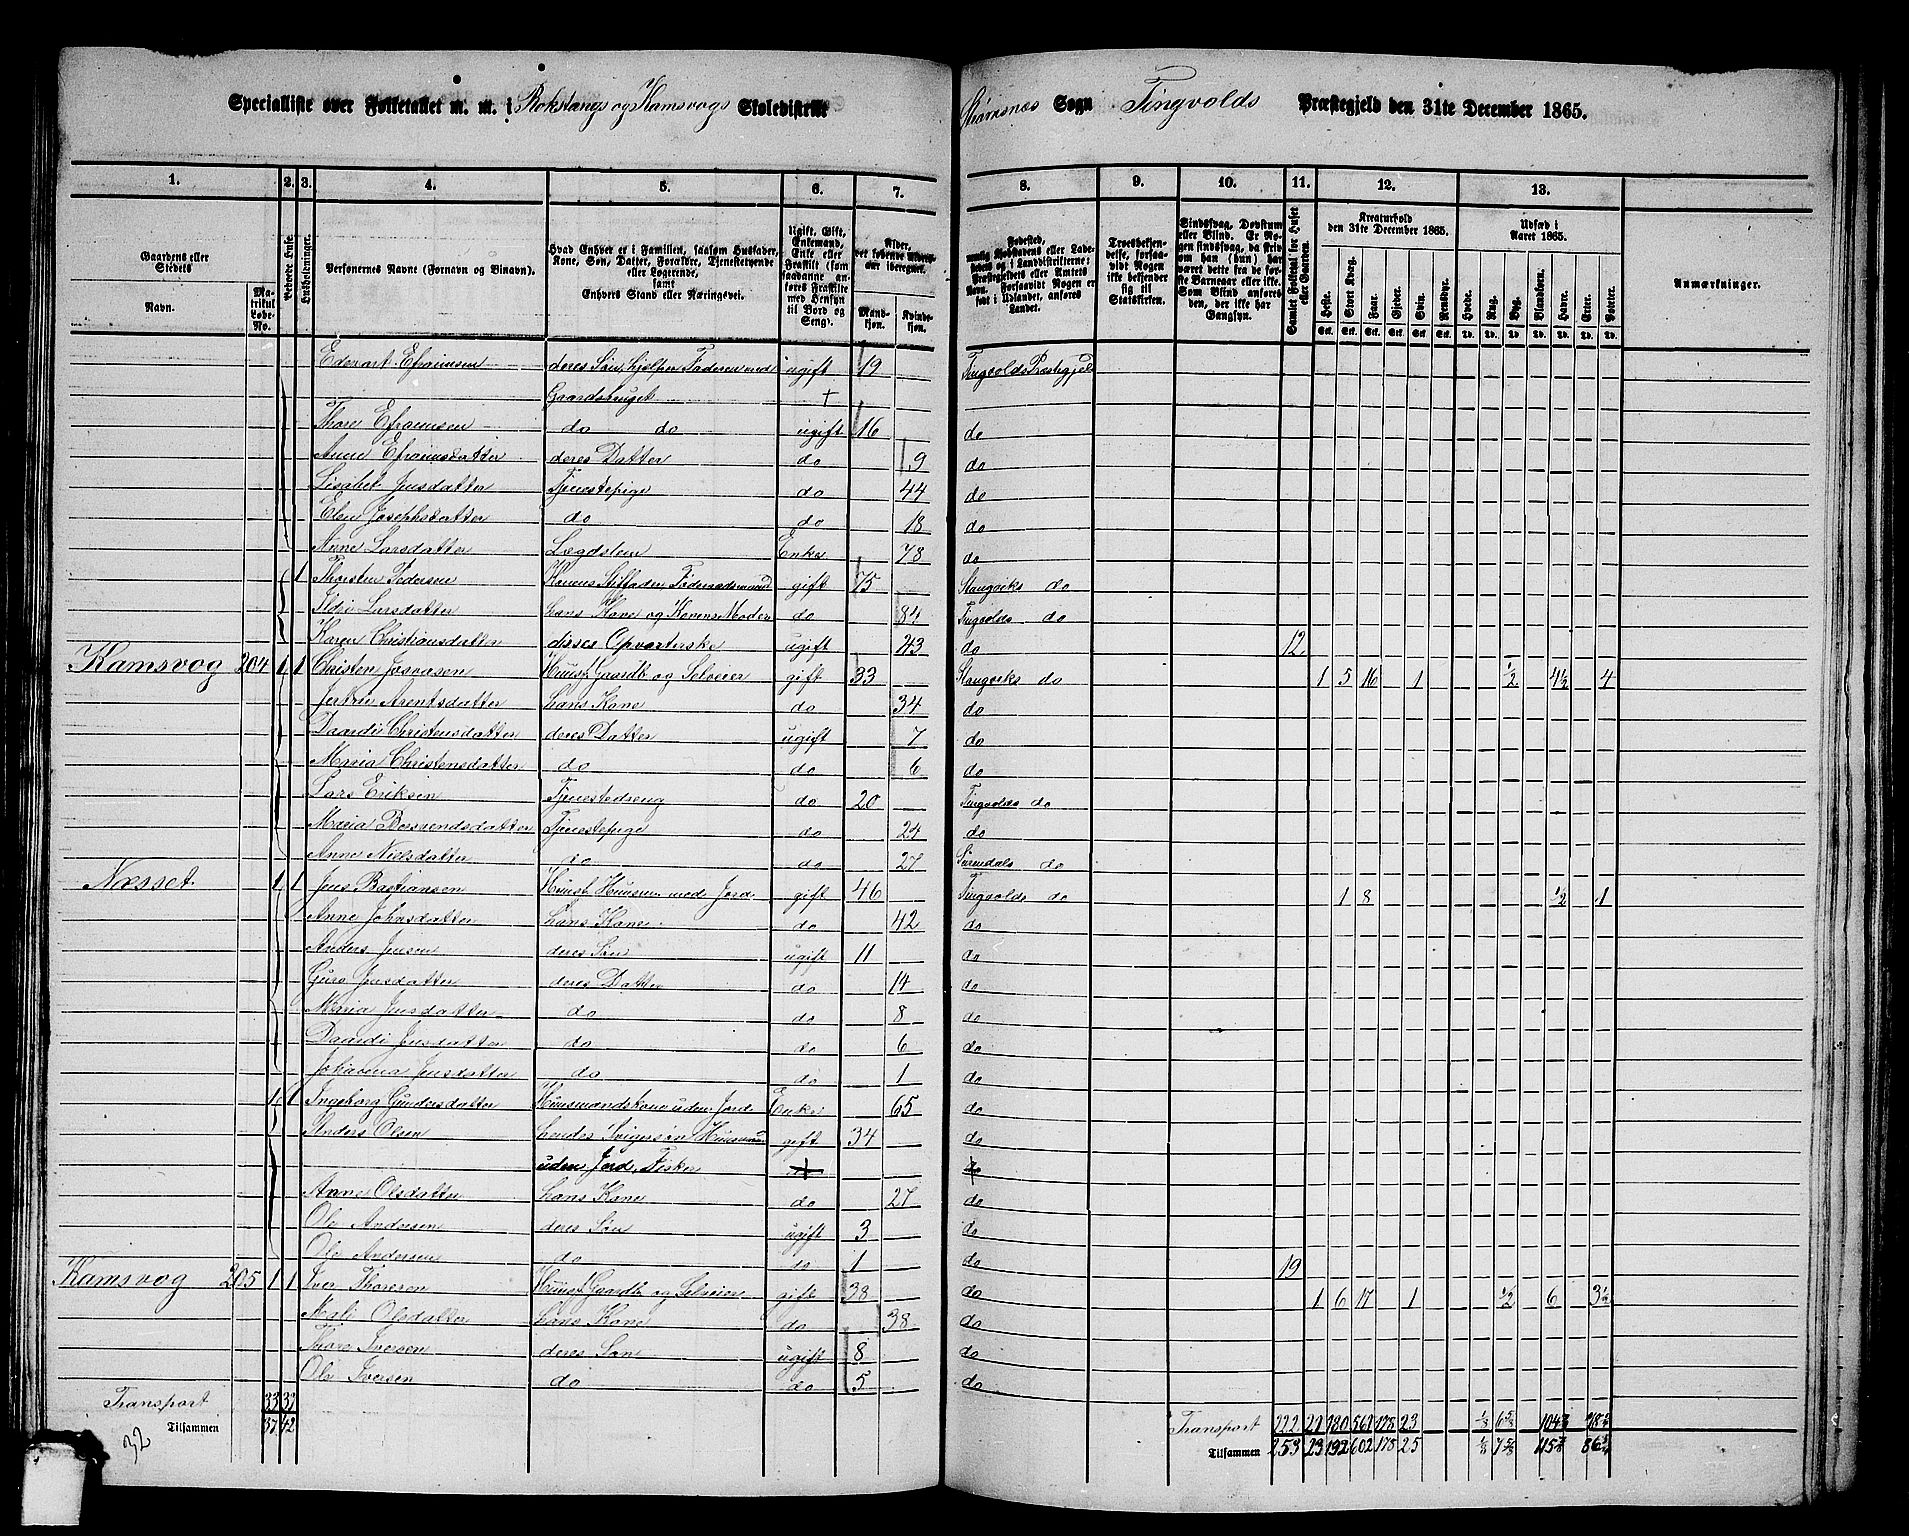 Specialliste over Folketallet m. m. i Rokstangs og Kamsvogs Skoledistrikt Straumsnæs Sogn Tingvolds Præstegjeld den 31te December 1865.
1. 2. 3. 4. 5. 6. 7. 8. 9. 10. 11. 12. 13.
Gaardens eller Stedets Navn. Matrikul Løbe-No. Beboede Huse. Husholdninger. Personernes Navne (Fornavn og Binavn). Hvad Enhver er i Familien, saasom Husfader, Kone, Søn, Datter, Forældre, Tjenestetyende eller Logerende, samt Enhvers Stand eller Næringsvei. Ugift, Gift, Enkemand, Enke eller Fraskilt (som saadanne anføres Fraskilte med Hensyn til Bord og Seng). Alder, det løbende Aldersaar iberegnet. Mandkjøn. Kvindekjøn. Fødested, Trosbekjendelse, forsaavidt Nogen ikke bekjender sig til Statskirken. Samlet Folketal for Huset eller Gaarden. Kreaturhold den 31te December 1865. Heste. Stort Kvæg. Faar. Gjeder. Svin. Rensdyr. Udsæd i Aaret 1865. Hvede. Rug. Byg. Blandkorn. Havre. Erter. Poteter. Anmærkninger.
Edevart Efraimsen deres Søn, hjelper Faderen med ugift 19 Tingvolds Præstegjel
Gaardsbruget +
Thore Efraimsen do do ugift 16 do
Anne Efraimsdatter deres Datter do 9 do
Lisabet Jensdatter Tjenestepige do 44 do
Elen Josephsdatter do do 18 do
Anne Larsdatter Lægdslem Enke 78 do
1 Thorsten Pedersen Konens Stiffader, Føderaadsmand gift 75 Stangviks do
Ildri Larsdatter hans Kone og Konens Moder do 84 Tingvolds do
Karen Christiansdatter disses Opvarterske ugift 43 do 12
Kamsvog 204 1 1 Christen Josvasen Huusf. Gaardb og Selveier gift 33 Stangviks do 1 5 16 1 1/2 4 1/2 4
Arentsdatter hans Kone do 34 do
Daardi Christensdatter deres Datter ugift 7 do
Maria Christensdatter do do 6 do
Lars Eriksen Tjenestedreng do 20 Tingvolds do
Maria Bersvendsdatter Tjenestepige do 24 do
Anne Nielsdatter do do 27 Surendals do
Næsset 1 1 Jens Bastiansen Huusf. Huusm med Jord gift 46 Tingvolds do 1 8 1/2 1
Anne Johnsdatter hans Kone do 42 do
Anders Jensen deres Søn ugift 11 do
Guro Jensdatter deres Datter do 14 do
Maria Jensdatter do do 8 do
Daardi Jensdatter do do 6 do
Johanna Jensdatter do do 1 do
1 1 Ingeborg Gundersdatter Huusmandskone uden Jord Enke 65 do
Anders Olsen hendes Svigersøn Huusmand gift 34 do
uden Jord, Fisker + do
Anne Olsdatter hans Kone do 27 do
Ole Andersen deres Søn ugift 3 do
Ole Andersen do do 1 do 19
Kamsvog 205 1 1 Iver Thoresen Huusf. Gaardb og Selveier gift 38 do 1 6 17 1 1/2 6 3 1/2
Mali Olsdatter hans Kone do 38 do
Thore Iversen deres Søn ugift 8 do
Ole Iversen do do 5 do
Transport 33 32 Transport 222 21 180 561 178 23 1/8
Tilsammen 37 42 Tilsammen 253 23 192 602 178 25 1/8
32